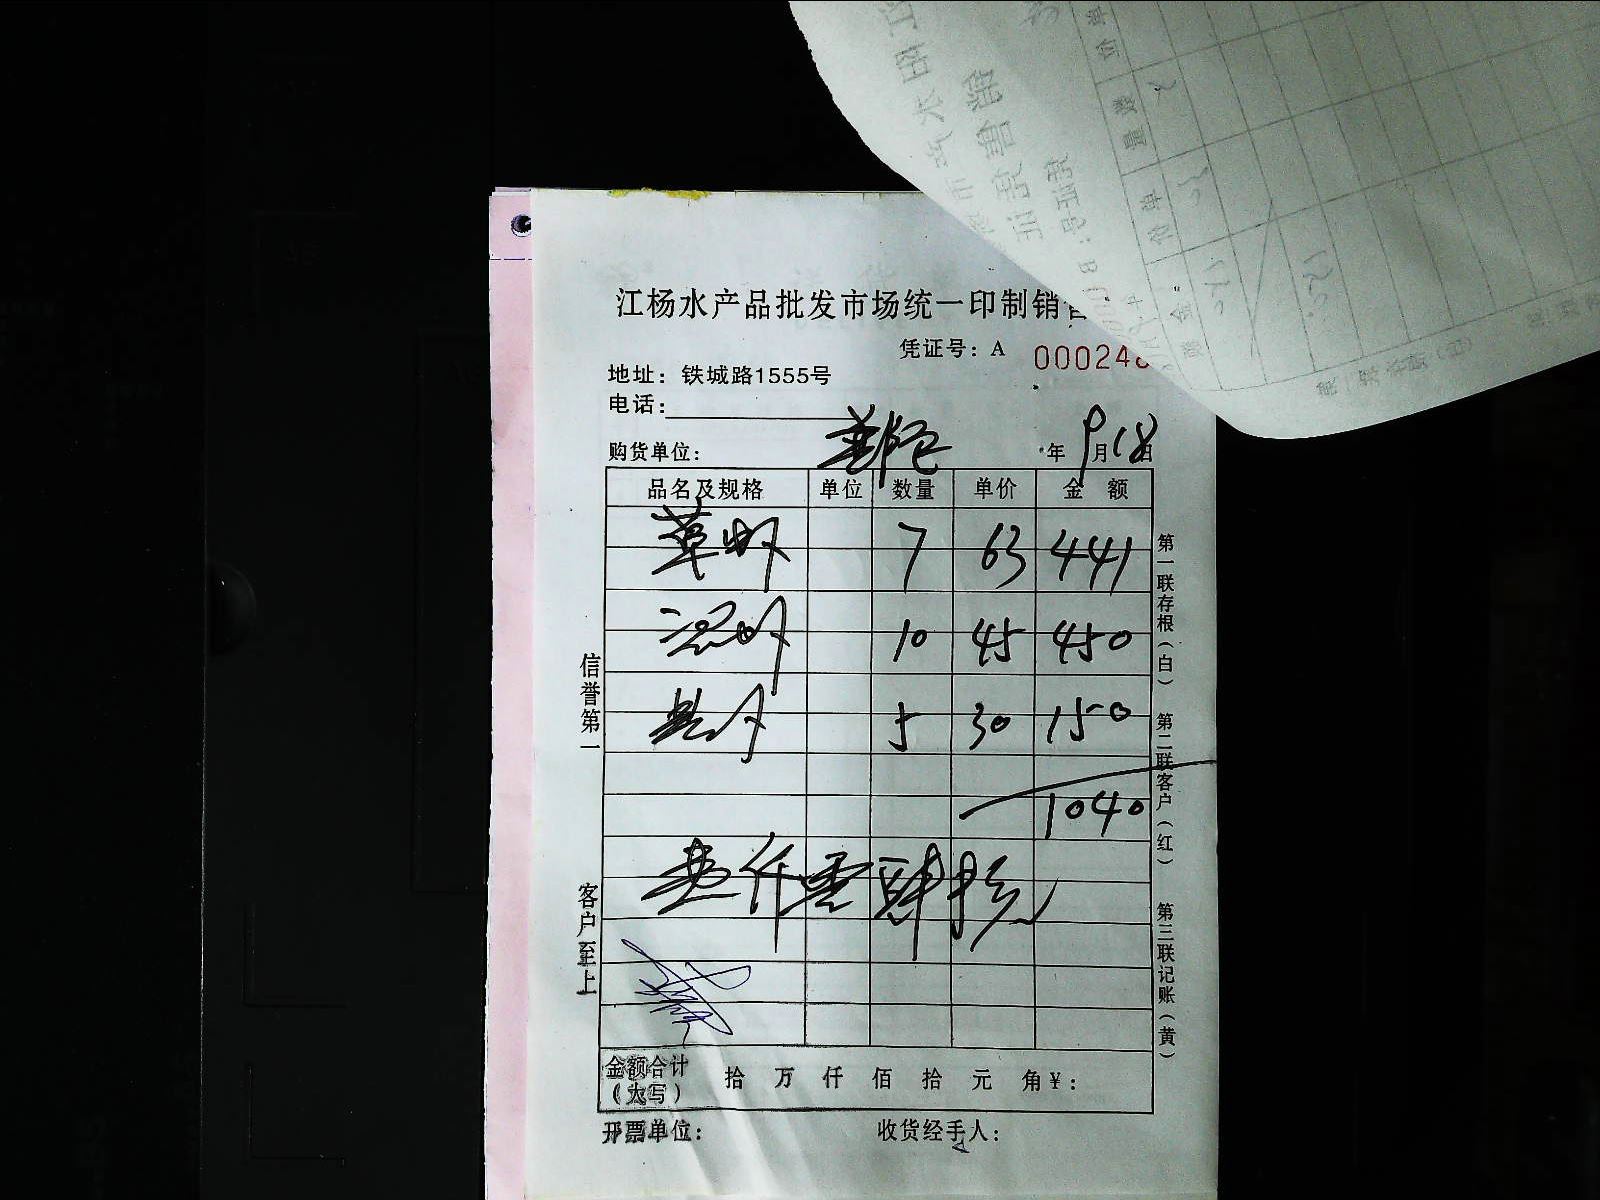 江杨水产品批发市场统一印制销
凭证号：A 000248
地址：铁城路1555号
电话：
购货单位： 年 9月18日
品名及规格 单位 数量 单价 金额
草虾 7 63 441
10 45 450
5 30 150
1040
壹仟零肆拾元
金额合计（大写） 拾 万 仟 佰 拾 元 角 ¥：
开票单位： 收货经手人：
信誉第一
客户至上
第一联存根（白）
第二联客户（红）
第三联记账（黄）